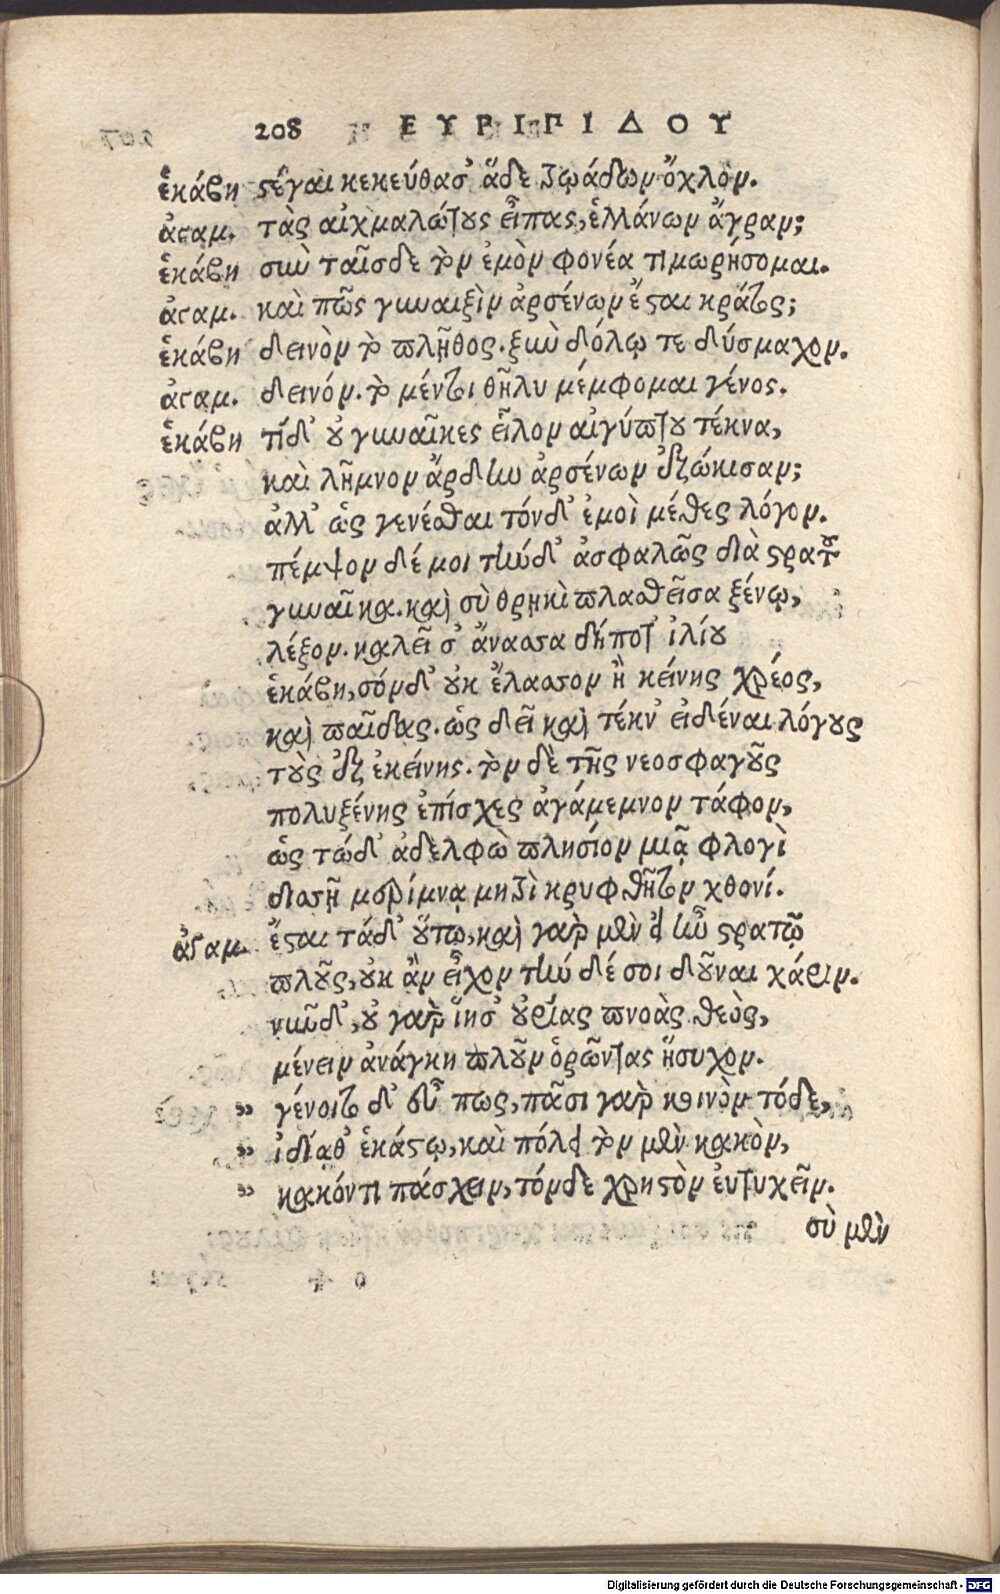 208 ΕΥΡΙΠΙΔΟΥ
ἑκάβη στέγαι κεκεύθασ' αἵδε τρῳάδων ὄχλον.
ἀγαμ. τὰς αἰχμαλώτους εἶπας, ἑλλάνων ἄγραν;
ἑκάβη σὺν ταῖσδε τὸν ἐμὸν φονέα τιμωρήσομαι.
ἀγαμ. καὶ πῶς γυναιξὶν ἀρσένων ἔσται κράτος;
ἑκάβη δεινὸν τὸ πλῆθος. ξὺν δόλῳ τε δύσμαχον.
ἀγαμ. δεινόν. τὸ μέντοι θῆλυ μέμφομαι γένος.
ἑκάβη τίδ' οὐ γυναῖκες εἷλον αἰγύπτου τέκνα,
καὶ λῆμνον ἄρδην ἀρσένων ἐξῴκισαν;
ἀλλ' ὡς γενέσθαι τόνδ' ἐμοὶ μέθες λόγον.
πέμψον δέ μοι τήνδ' ἀσφαλῶς διὰ στρατοῦ
γυναῖκα. καὶ σὺ θρῃκὶ πλασθεῖσα ξένῳ,
λέξον. καλεῖ σ' ἄνασσα δήποτ' ἰλίου
ἑκάβη, σόνδ' οὐκ ἔλασσον ἢ κείνης χρέος,
καὶ παῖδας. ὡς δεῖ καὶ τέκν' εἰδέναι λόγους
τοὺς ἐξ ἐκείνης. τὸν δὲ τῆς νεοσφαγοῦς
πολυξένης ἐπίσχες ἀγάμεμνον τάφον,
ὡς τώδ' ἀδελφὼ πλησίον μιᾷ φλογὶ
δισσῆ μερίμνα μητρὶ κρυφθῆτον χθονί.
ἀγαμ. ἔσται τάδ' οὕτω, καὶ γὰρ μὲν εἰ ἦν στρατῷ
πλοῦς, οὐκ ἂν εἶχον τήν δέ σοι δοῦναι χάριν.
νῦνδ', οὐ γὰρ ἵησ' οὐρίας πνοὰς θεὸς,
μένειν ἀνάγκη πλοῦν ὁρῶντας ἥσυχον.
” γένοιτο δ' εὖ πως, πᾶσι γὰρ κοινὸν τόδε,
” ἰδίᾳθ' ἑκάστῳ, καὶ πόλει τὸν μὲν κακὸν,
” κακόντι πάσχειν, τόνδε χρηστὸν εὐτυχεῖν.
σὺ μὲν
Digitalisierung gefördert durch die Deutsche Forschungsgemeinschaft - DFG